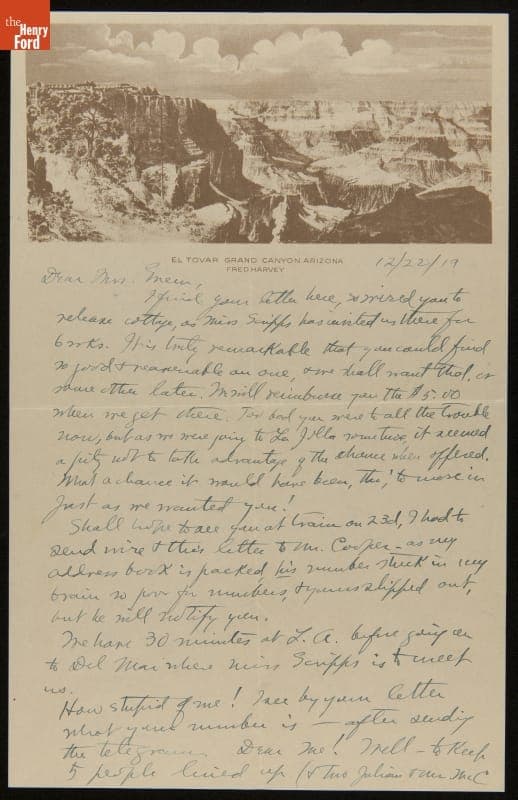 the
Henry
Ford
EL TOVAR GRAND CANYON, ARIZONA
FRED HARVEY
12/22/19
Dear Mrs.
I find your letter here, so wired you to
release cottage, as Miss Scripps has invited us there for
6 wks. It is truly remarkable that you could find
so good & reasonable an one, & we shall want that, or
some other later. I will reimburse you the $5.00
when we get there. Too bad you were to all the trouble
now, but as we were going to La Jolla sometime, it seemed
a pity not to take advantage of the chance when offered.
What a chance it would have been, tho', to move in
just as we wanted you!
Shall hope to see you at train on 23d, I had to
send wire & this letter to Mr. Cooper - as my
address book is packed, his number stuck in my
brain so poor for numbers, & yours slipped out,
but he will notify you.
We have 30 minutes at L.A. before going on
to Del Mar where Miss Scripps is to meet
us.
How stupid of me! I see by your letter
what your number is — after sending
the telegram. Dear Me! Well - to keep
5 people lined up (& two Julian & Mr. McC